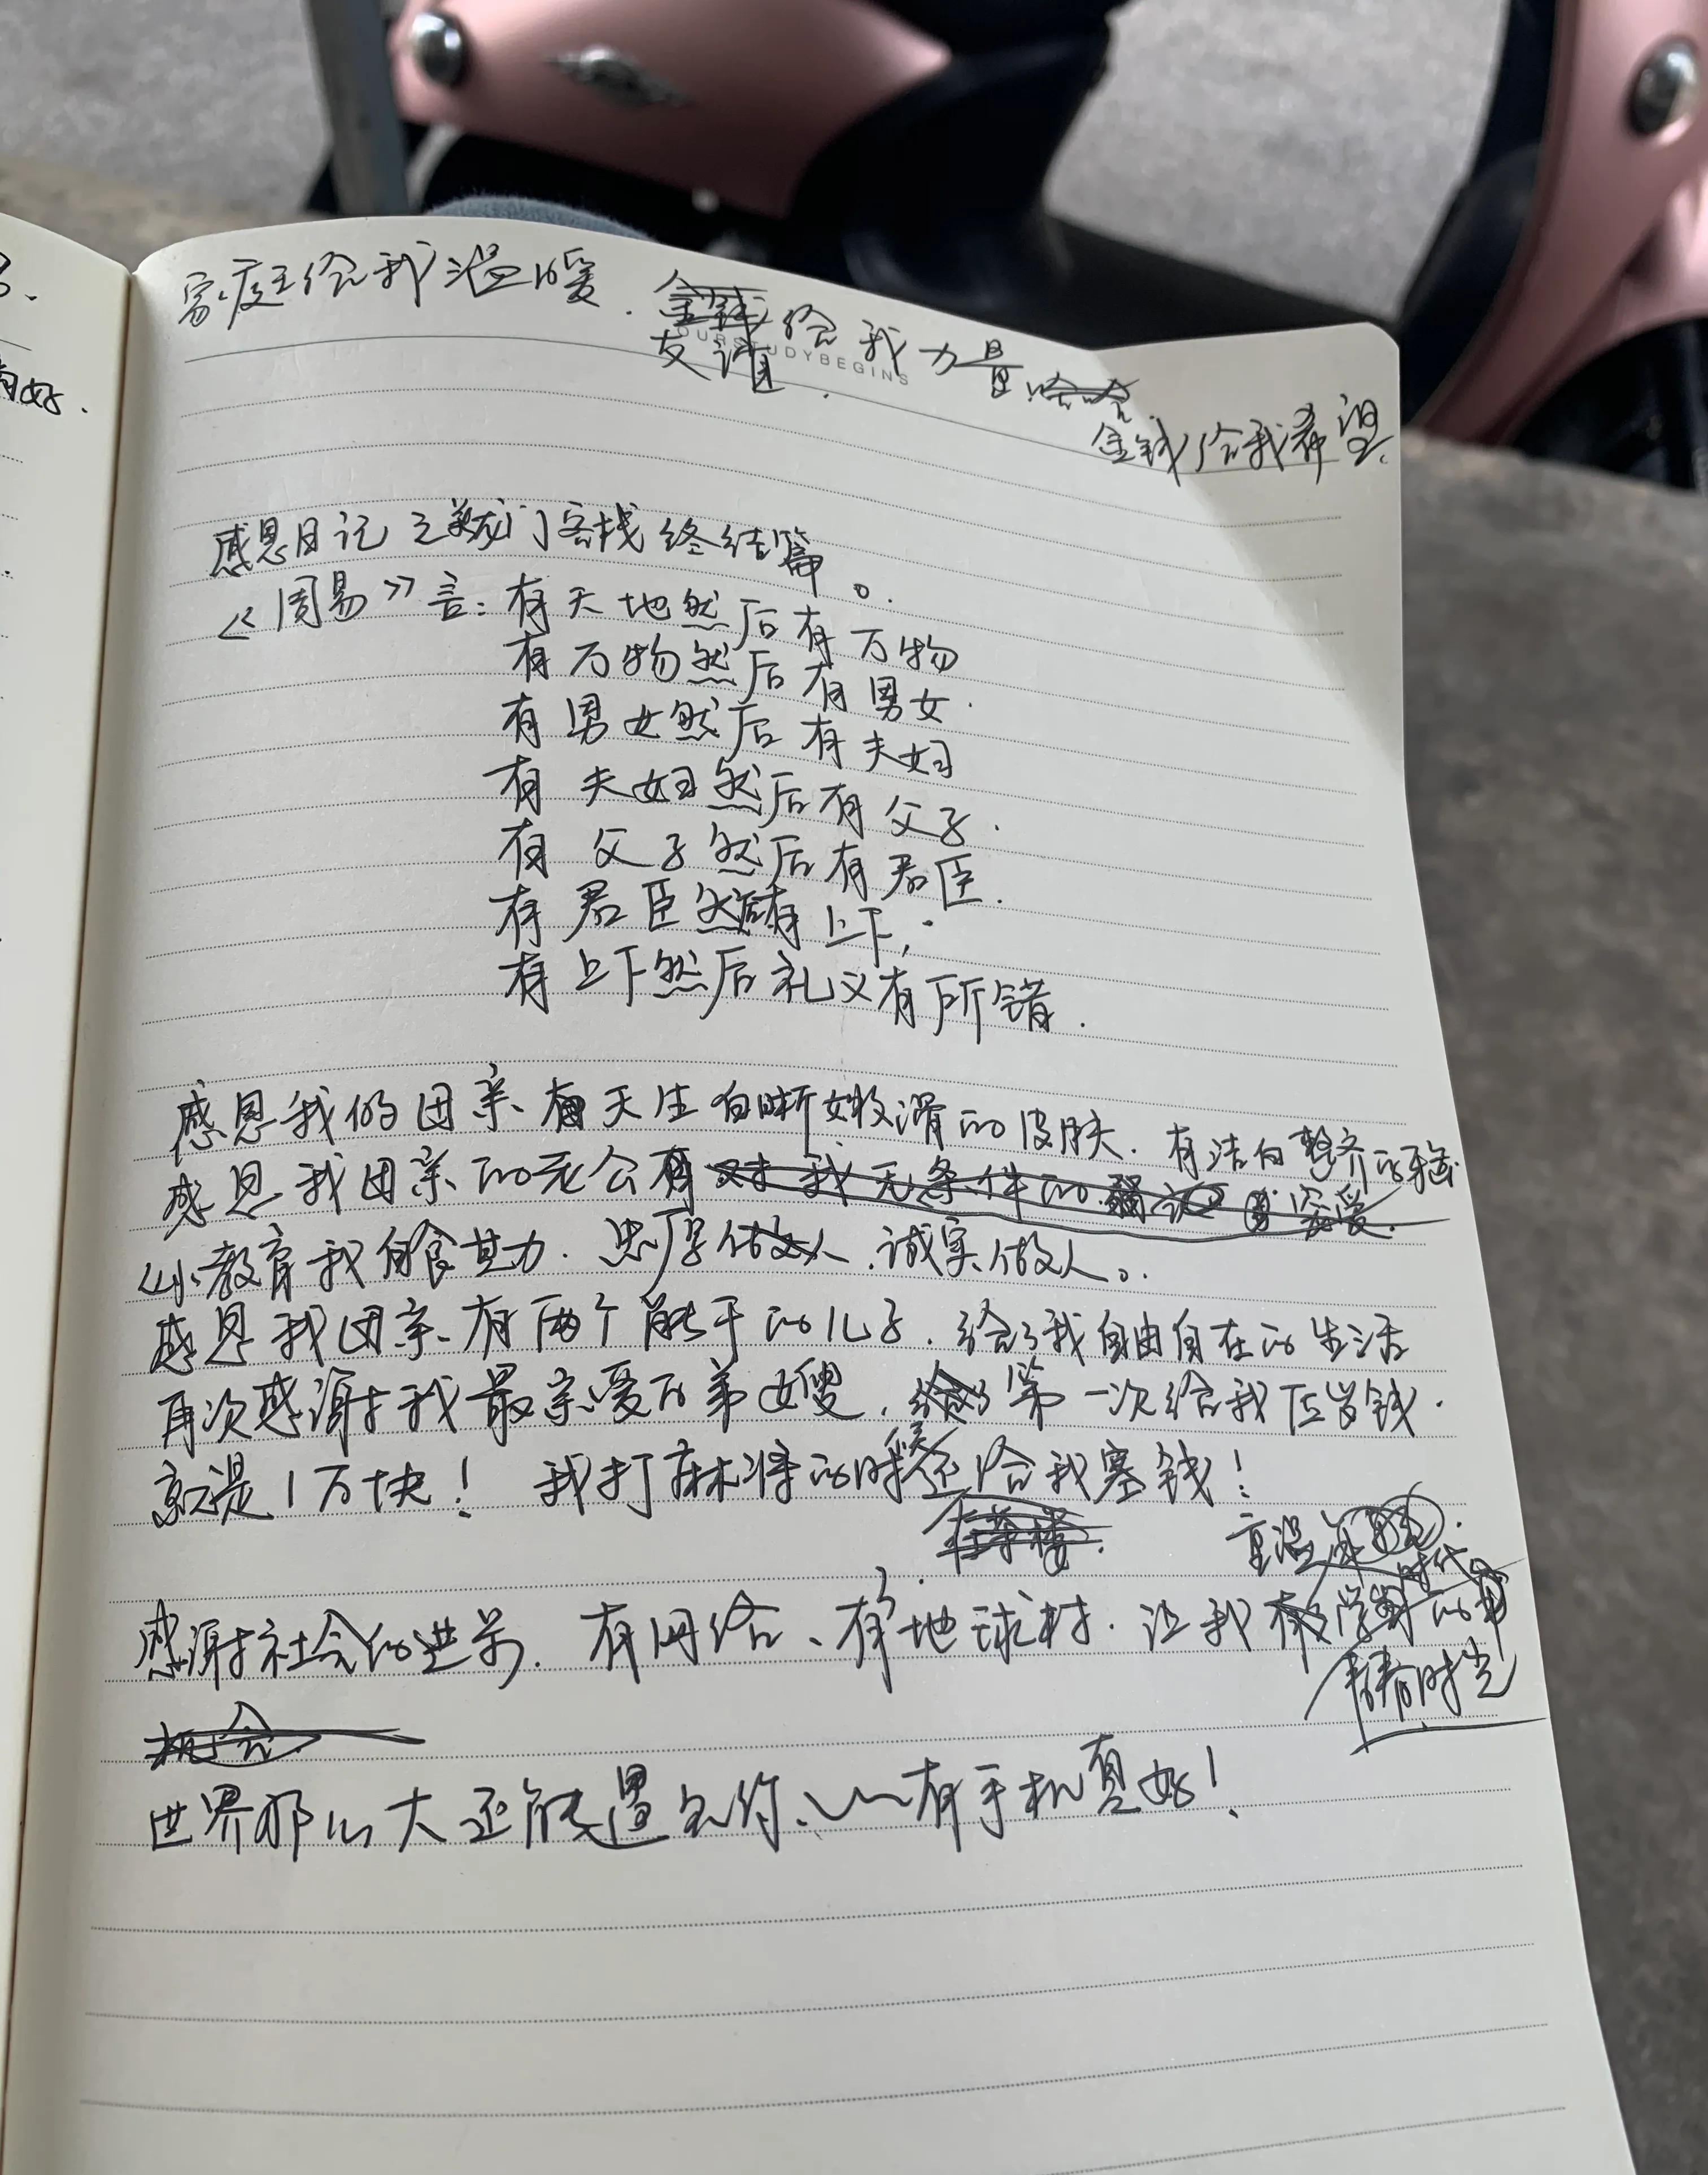 家庭给我温暖. 金钱给我力量.哈哈.
OURSTUDYBEGINS
友谊.
金钱给我希望.
感恩日记之龙门客栈终结篇。
《周易》言:有天地然后有万物
有万物然后有男女.
有男女然后有夫妇
有夫妇然后有父子.
有父子然后有君臣.
有君臣然后有上下,
有上下然后礼义有所错.
感恩我的母亲、有天生白晰嫩滑的皮肤. 有洁白整齐的牙齿.
感恩我母亲的老公有对我无条件的 宠爱.
从小教育我自食其力. 忠厚做人.诚实做人。
感恩我母亲、有两个能干的儿子. 给了我自由自在的生活
再次感谢我最亲爱的弟媳, 给了第一次给我压岁钱.
就是1万块! 我打麻将的时候还给我塞钱!
在茶楼.
重温
感谢社会的进步. 有网络、有地球村. 让我有 时代的
青春时光
机会
世界那么大还能遇见你、有手机真好!